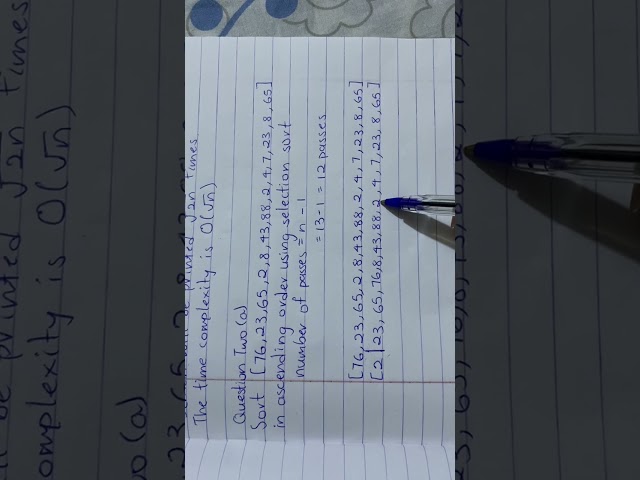 be printed √2n times
The time complexity is O(√n)
Question Two (a)
Sort [76,23,65,2,8,43,88,2,4,7,23,8,65]
in ascending order using selection sort
number of passes = n - 1
= 13 - 1 = 12 passes
[76,23,65,2,8,43,88,2,4,7,23,8,65]
[2|23,65,76,8,43,88,2,4,7,23,8,65]